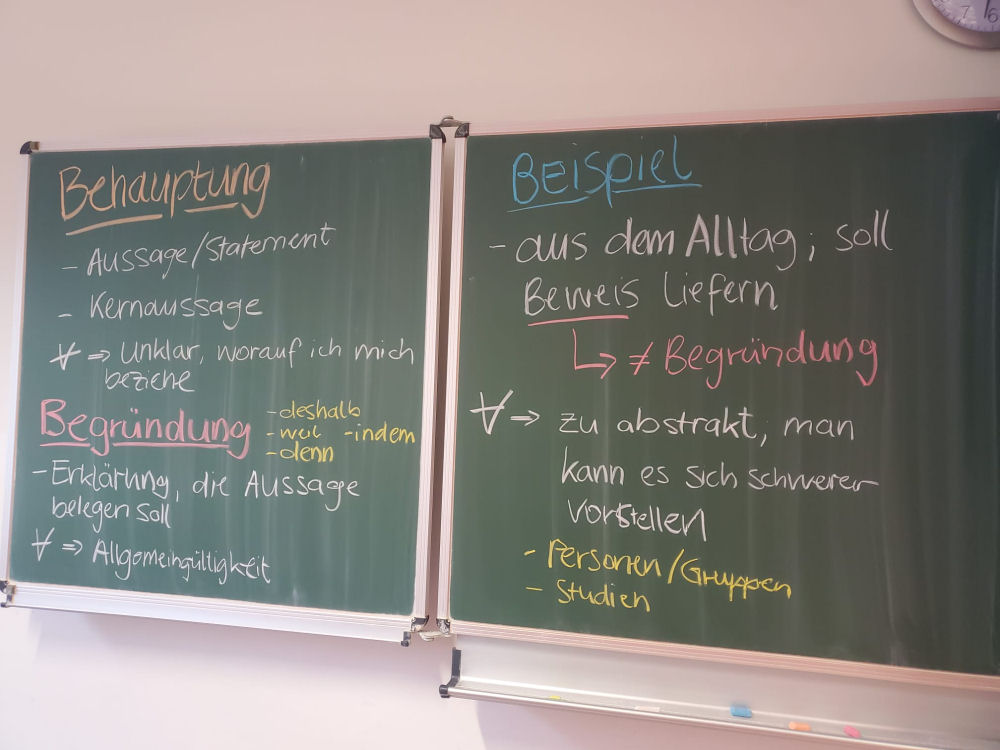 Behauptung
- Aussage/Statement
- Kernaussage
∀ => Unklar, worauf ich mich
beziehe
Begründung
- deshalb
- weil - indem
- denn
- Erklärung, die Aussage
belegen soll
∀ => Allgemeingültigkeit
Beispiel
- aus dem Alltag; soll
Beweis liefern
↳ ≠ Begründung
∀ => zu abstrakt, man
kann es sich schwerer
vorstellen
- Personen/Gruppen
- Studien
7 6